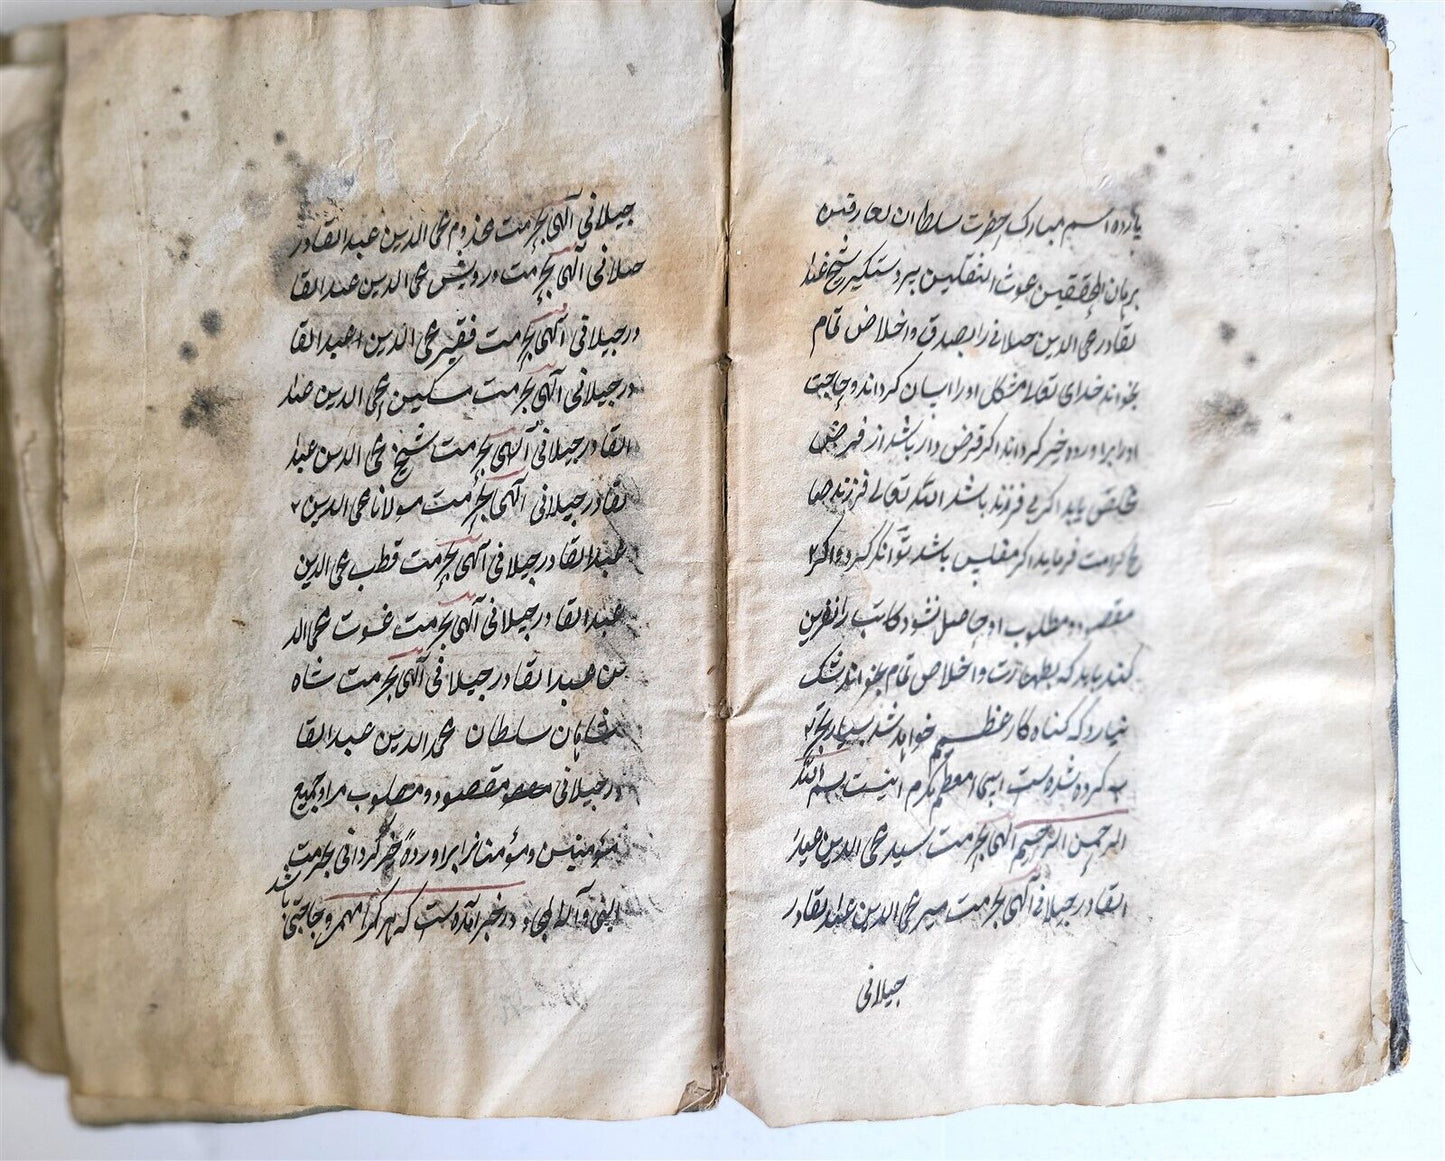 یازده اسم مبارک حضرت سلطان العارفین
برهان المحققین غوث الثقلین پیر دستگیر شیخ عبدا
لقادر محی الدین جیلانی را بصدق و اخلاص تمام
بخواند خدای تعالا مشکل او را اسان کرداند و حاجت
او را براورده خیر کرداند اکر قرض دار باشد از قرض
خلاص یابد اکر بی فرزند باشد الله تعالی فرزند صا
لح کرامت فرماید اکر مفلس باشد توانکر کردد و اکر
مقصود و مطلوب او حاصل نشود کاتب را نفرین
کنند باید که بطهارت و اخلاص تمام بخواند شک
نیارد که کناه کار عظیم خواهد شد بسیار تجر
به کرده شده ست اسمی معظم مکرم اینست بسم الله
الرحمن الرحیم الهی بحرمت سید محی الدین عبد
القادر جیلانی الهی بحرمت میر محی الدین عبدالقادر
جیلانی
جیلانی الهی بحرمت مخدوم محی الدین عبدالقادر
جیلانی الهی بحرمت درویش محی الدین عبدالقا
در جیلانی الهی بحرمت فقیر محی الدین عبدالقا
در جیلانی الهی بحرمت مسکین محی الدین عبد
القادر جیلانی الهی بحرمت شیخ محی الدین عبد
لقادر جیلانی الهی بحرمت مولانا محی الدین
عبدالقادر جیلانی الهی بحرمت قطب محی الدین
عبدالقادر جیلانی الهی بحرمت غوث محی الد
ین عبدالقادر جیلانی الهی بحرمت شاه
شاهان سلطان محی الدین عبدالقا
در جیلانی مقصود و مطلوب مرا و جمیع
مؤمنین و مؤمنات را براورده خیر کردانی بحرمت
النبی و آله در خبر آمده ست که هر کرا مهم و حاجتی باشد